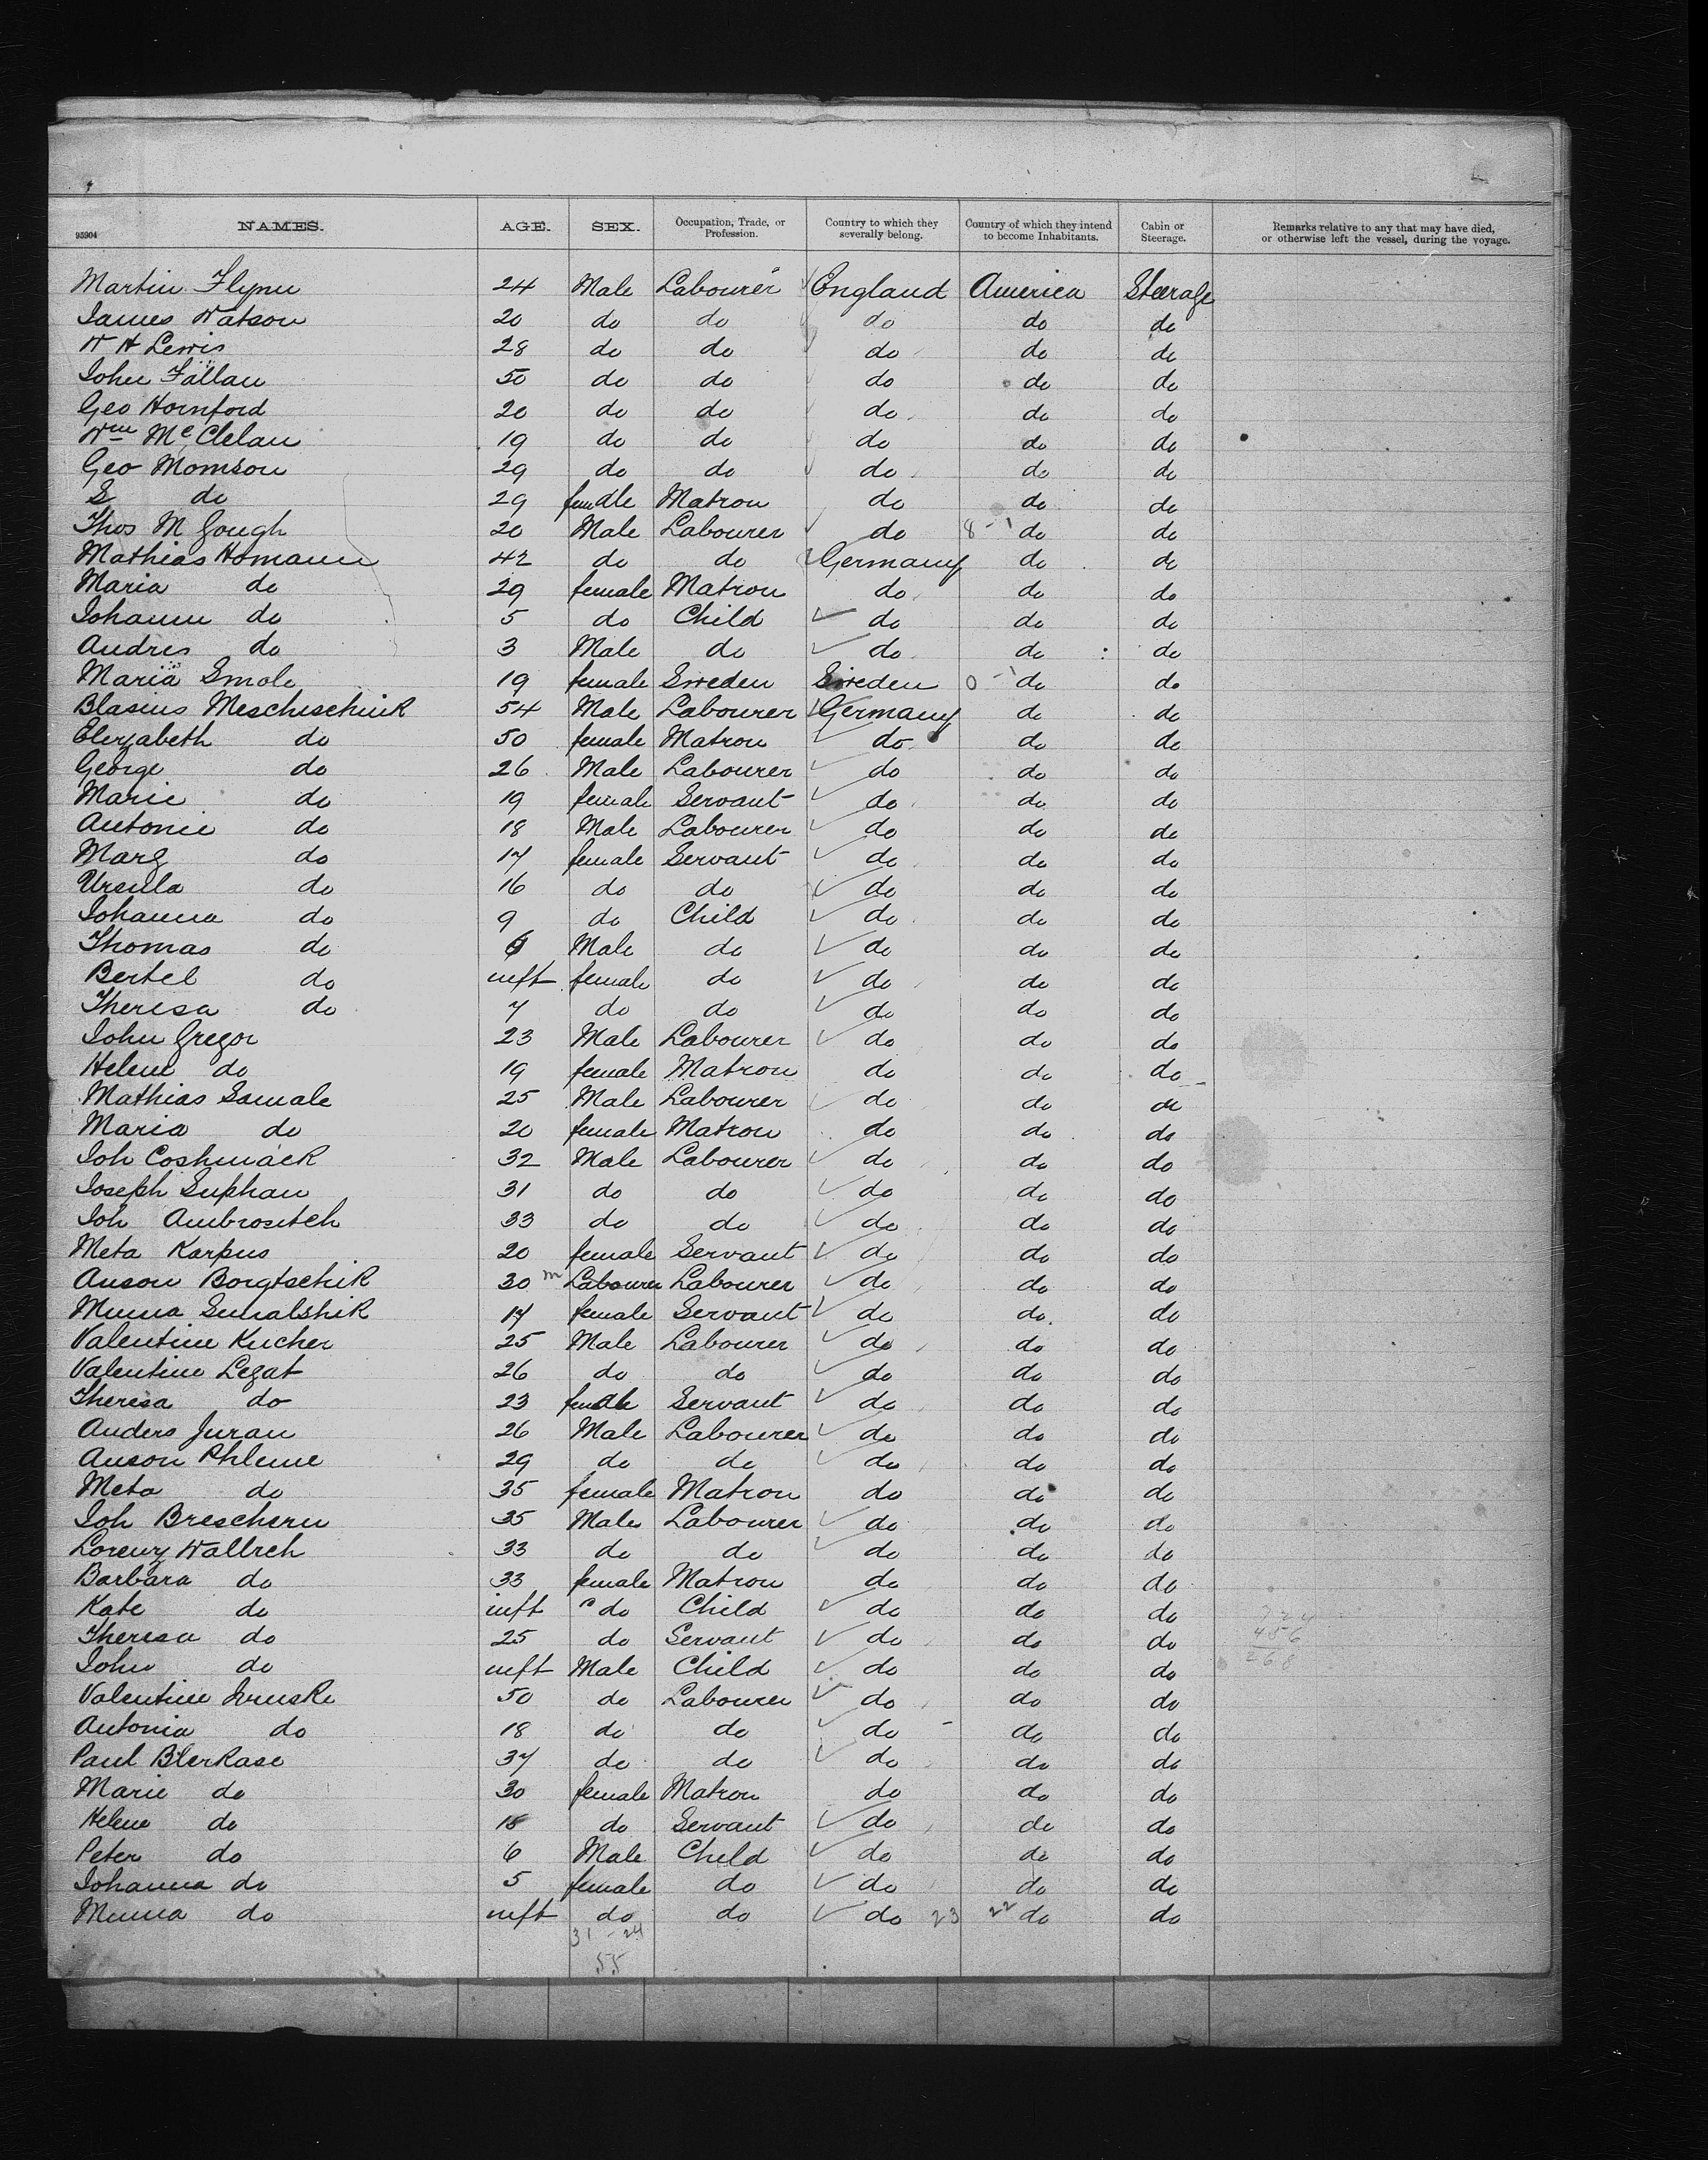 95904 NAMES. AGE. SEX. Occupation, Trade, or Profession. Country to which they severally belong. Country of which they intend to become Inhabitants. Cabin or Steerage. Remarks relative to any that may have died, or otherwise left the vessel, during the voyage.
Martin Flynn 24 Male Labourer England America Steerage
James Watson 20 do do do do do
W H Lewis 28 do do do do do
John Fallan 50 do do do do do
Geo Hornford 20 do do do do do
Wm McClelan 19 do do do do do
Geo Momson 29 do do do do do
S do 29 female Matron do do do
Thos M Gough 20 Male Labourer do 8 - 1 do do
Mathias Homann 42 do do Germany do do
Maria do 29 female Matron do do do
Johann do 5 do Child do do do
Andres do 3 Male do do do do
Maria Smole 19 female Sweden Sweden 0 - 1 do do
Blasius Mescheschink 54 Male Labourer Germany do do
Elerzabeth do 50 female Matron do do do
George do 26 Male Labourer do do do
Marie do 19 female Servant do do do
Antonie do 18 Male Labourer do do do
Marg do 17 female Servant do do do
Ursula do 16 do do do do do
Johanna do 9 do Child do do do
Thomas do 6 Male do do do do
Bertel do inft female do do do do
Theresa do 7 do do do do do
John Gregor 23 Male Labourer do do do
Helene do 19 female Matron do do do
Mathias Samale 25 Male Labourer do do do
Maria do 20 female Matron do do do
Joh Coshmack 32 Male Labourer do do do
Joseph Suphan 31 do do do do do
Joh Ambrositch 33 do do do do do
Meta Karpus 20 female Servant do do do
Anson Borgtschik 30 m Labourer Labourer do do do
Minna Smalshik 17 female Servant do do do
Valentine Kucher 25 Male Labourer do do do
Valentine Legat 26 do do do do do
Theresa do 23 female Servant do do do
Anders Juran 26 Male Labourer do do do
Anson Phleme 29 do do do do do
Meta do 35 female Matron do do do
Joh Breschern 35 Male Labourer do do do
Lorenz Wallrch 33 do do do do do
Barbara do 33 female Matron do do do
Kate do inft do Child do do do
Theresa do 25 do Servant do do do
John do inft Male Child do do do
Valentine 50 do Labourer do do do
Antonia do 18 do do do do do
Paul Blerkase 37 do do do do do
Marie do 30 female Matron do do do
Helene do 18 do Servant do do do
Peter do 6 Male Child do do do
Johanna do 5 female do do do do
Minna do inft do do do 23 22 do do
31 - 24
55